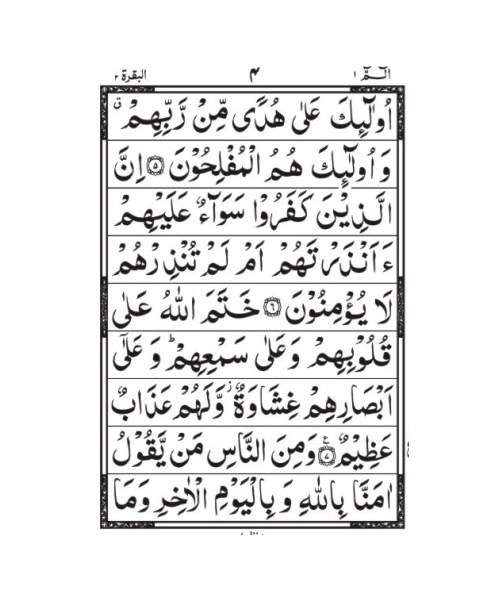 الٓمّٓ ١ ٤ البقرة ٢
اُولٰٓئِكَ عَلٰى هُدًى مِّنْ رَّبِّهِمْ ۗ
وَ اُولٰٓئِكَ هُمُ الْمُفْلِحُوْنَ ۝٥ اِنَّ
الَّذِيْنَ كَفَرُوْا سَوَآءٌ عَلَيْهِمْ
ءَاَنْذَرْتَهُمْ اَمْ لَمْ تُنْذِرْهُمْ
لَا يُؤْمِنُوْنَ ۝٦ خَتَمَ اللّٰهُ عَلٰى
قُلُوْبِهِمْ وَعَلٰى سَمْعِهِمْ ؕ وَ عَلٰٓى
اَبْصَارِهِمْ غِشَاوَةٌ ۡ وَّلَهُمْ عَذَابٌ
عَظِيْمٌ ۝٧ وَمِنَ النَّاسِ مَنْ يَّقُوْلُ
اٰمَنَّا بِاللّٰهِ وَ بِالْيَوْمِ الْاٰخِرِ وَمَا